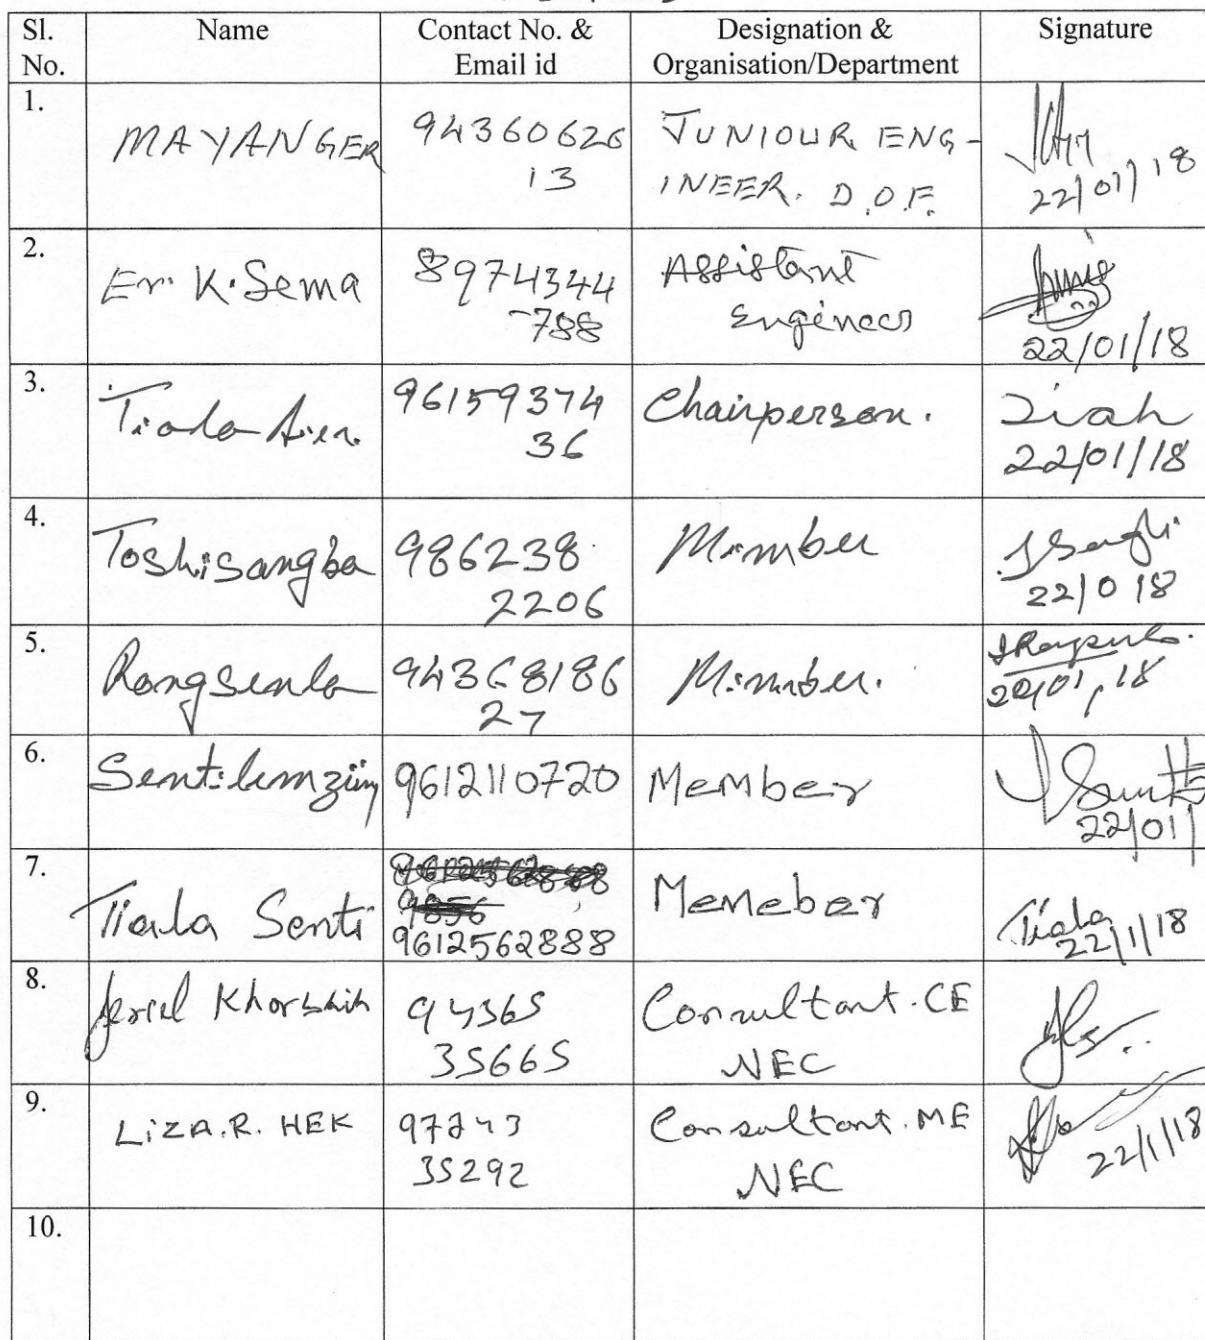 Sl. No.
Name
Contact No. & Email id
Designation & Organisation/Department
Signature
1.
MAYANGER
94360626
13
JUNIOUR ENG-
INEER. D.O.F.
22/01/18
2.
Er. K. Sema
89744344
-788
Assistant
Engineer
22/01/18
3.
Tiala Aier.
96159374
36
Chairperson.
22/01/18
4.
Toshisangba
986238
2206
Member
22/0 18
5.
Rongsenla
94368186
27
Member.
22/01, 18
6.
9612110720
Member
22/01/
7.
Tiala Senti
9612562888
Memeber
Tiala
22/1/18
8.
Khorbhih
94365
35665
Consultant. CE
NEC
9.
LiZA.R. HEK
35292
Consultant. ME
NEC
22/1/18
10.